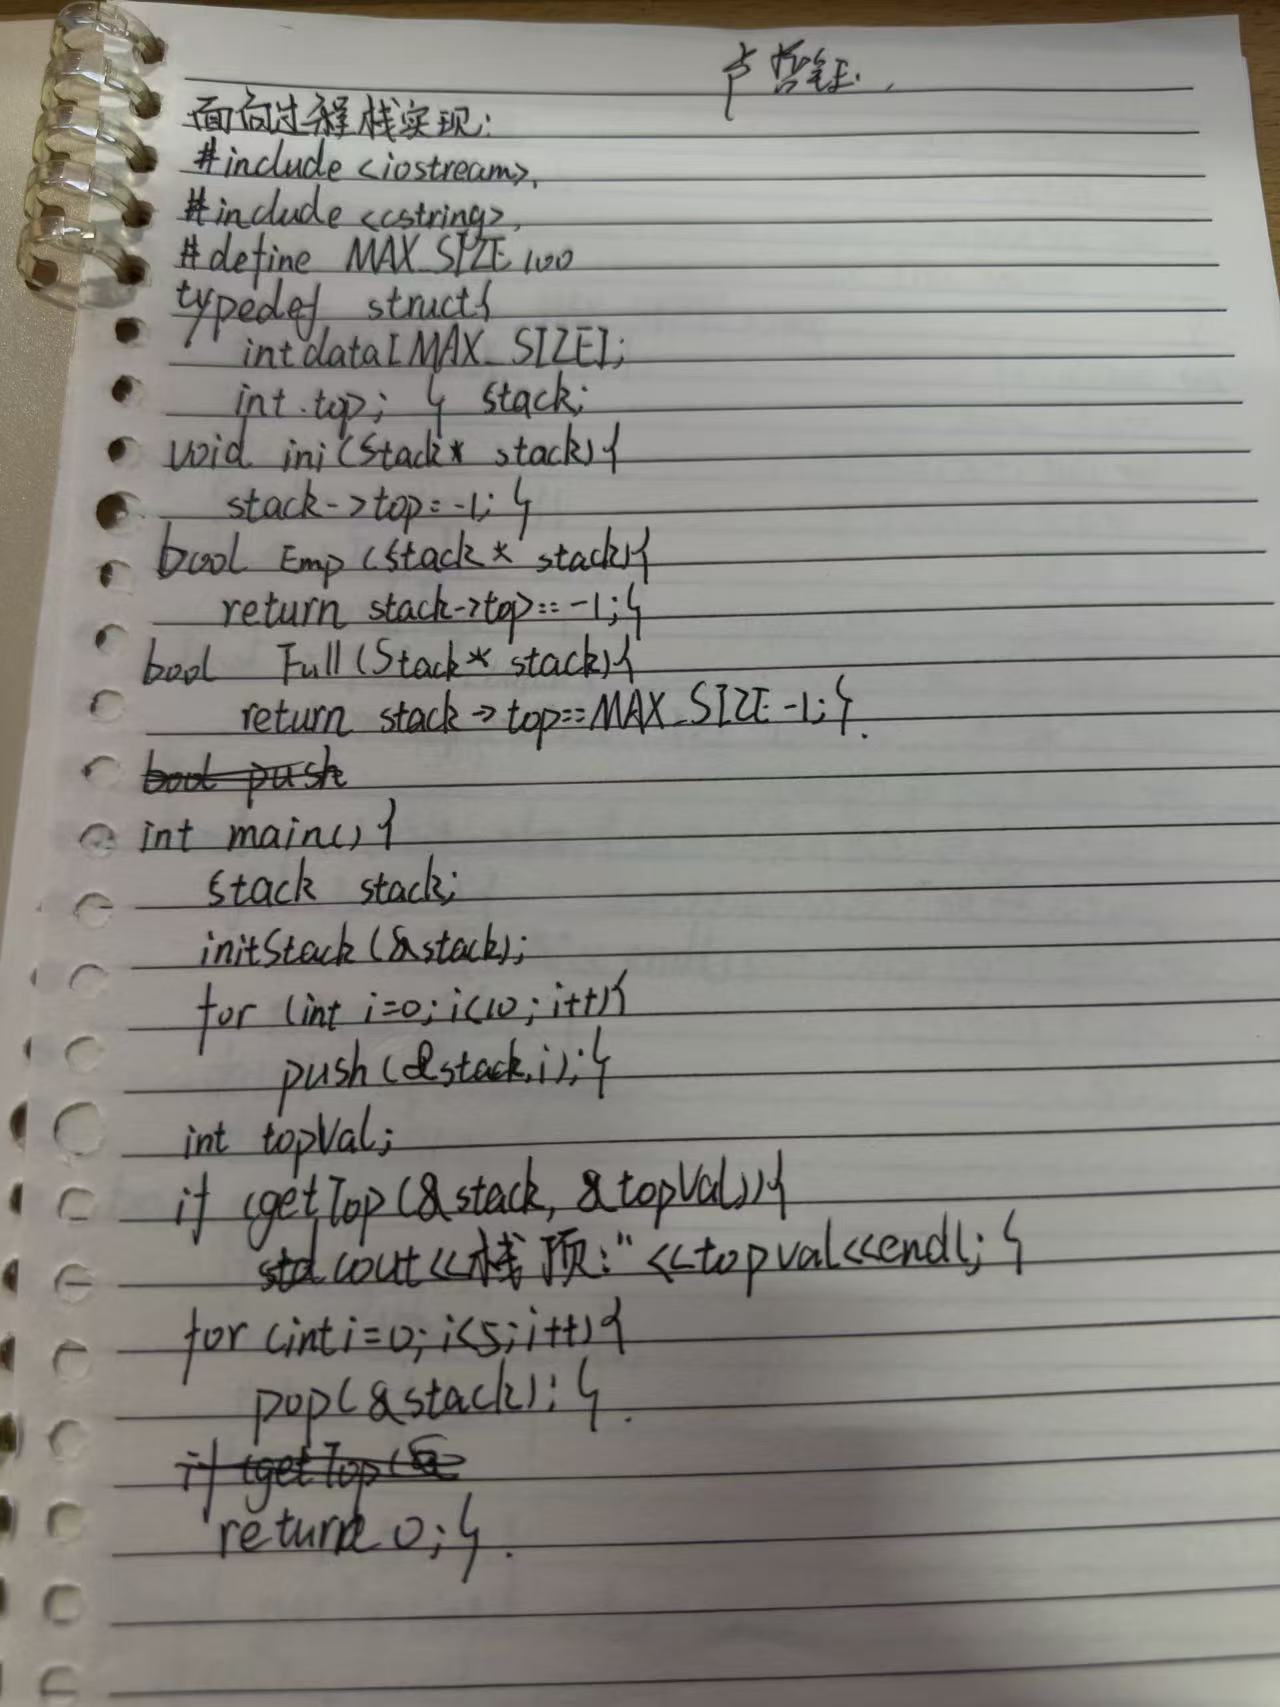 卢哲钰.
面向过程栈实现:
#include <iostream>.
#include <cstring>.
#define MAX_SIZE 100
typedef struct{
int data[MAX_SIZE];
int top; } stack;
void ini (Stack* stack){
stack->top=-1; }
bool Emp (Stack* stack){
return stack->top==-1; }
bool Full (Stack* stack){
return stack->top==MAX_SIZE-1; }.
bool push
int main() {
Stack stack;
initStack (&stack);
for (int i=0; i<10; i++){
push (&stack,i); }
int topVal;
if (getTop (&stack, &topVal)){
std cout<<栈顶:"<<topval<<endl; }
for (int i=0; i<5; i++){
pop(&stack); }.
if (getTop (&
return 0; }.